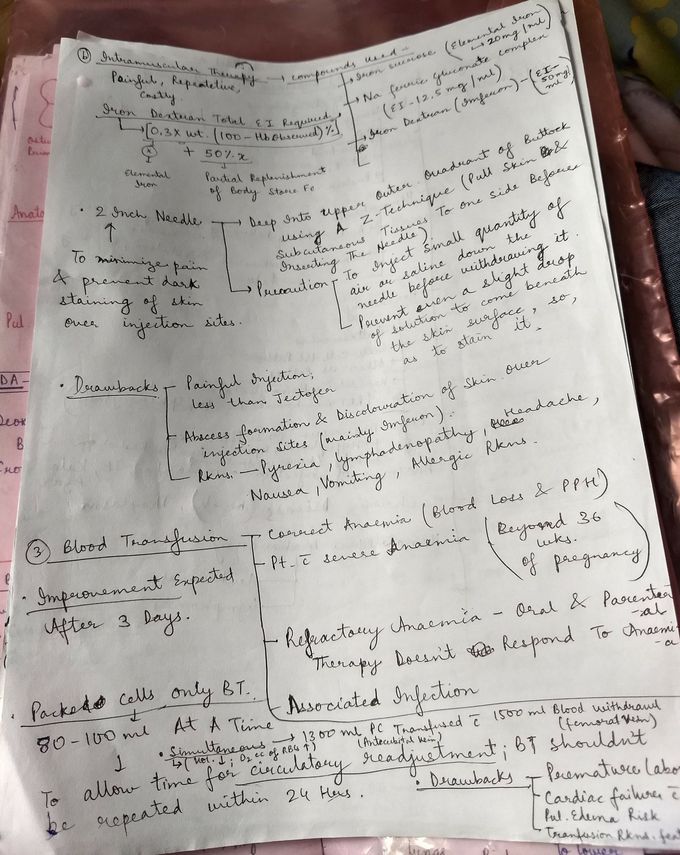 (b) Intramuscular Therapy → compounds used -
Painful, Repeatitive,
Costly.
→ Iron sucrose (Elemental Iron → 20mg/ml)
→ Na ferric gluconate complex
(EI - 12.5 mg/ml)
→ Iron Dextran (Imferon) - (EI - 50mg/ml)
Iron Dextran Total EI Required
→ [0.3 x wt. (100 - Hb Observed)%]
(x) + 50% x
Elemental Iron
Partial Replenishment
of Body Store Fe
• 2 Inch Needle
To minimize pain
& prevent dark
staining of skin
over injection sites.
→ Deep Into Upper Outer Quadrant of Buttock
using A Z-Technique (Pull Skin &
Subcutaneous Tissues To one side Before
Inserting The Needle)
→ Precaution
To Inject Small quantity of
air or saline down the
needle before withdrawing it.
Prevent even a slight drop
of solution to come beneath
the skin surface, so,
as to stain it.
• Drawbacks
Painful Injection,
less than Jectofer
Abscess formation & Discolouration of Skin over
injection sites (mainly Imferon).
Rkns. - Pyrexia, lymphadenopathy, Headache,
Nausea, Vomiting, Allergic Rkns.
(3) Blood Transfusion
Correct Anaemia (Blood Loss & PPH)
Pt. c̄ severe Anaemia (Beyond 36
wks.
of pregnancy)
• Improvement Expected
After 3 Days.
Refractory Anaemia - Oral & Parenter
-al
Therapy Doesn't Respond To Anaemi
-a
Associated Infection
• Packed cells only BT.
↓
80-100 ml At A Time
↓
To allow time for circulatory readjustment; BT shouldn't
be repeated within 24 Hrs.
• Simultaneous → 1300 ml PC Transfused c̄ 1500 ml Blood withdrawl
(Antecubital vein) (femoral vein)
↳ (Vol. ↓; O2 cc of RBC ↑)
• Drawbacks
Premature labo
Cardiac failure c̄
Pul. Edema Risk
Tranfusion Rkns.
to lower
Anato
Pul
DA-